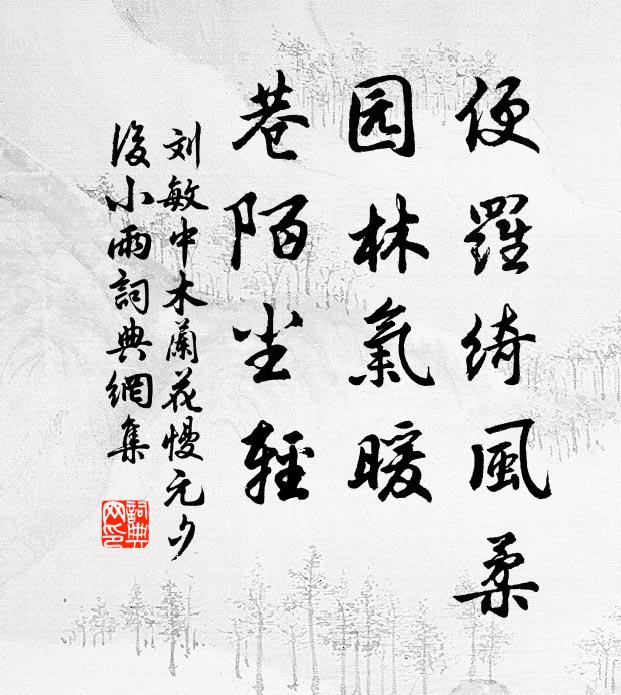 便羅綺風柔
园林氣暖
巷陌尘輕
刘敏中木蘭花慢元夕
後小雨詞典網集
詞典
网印